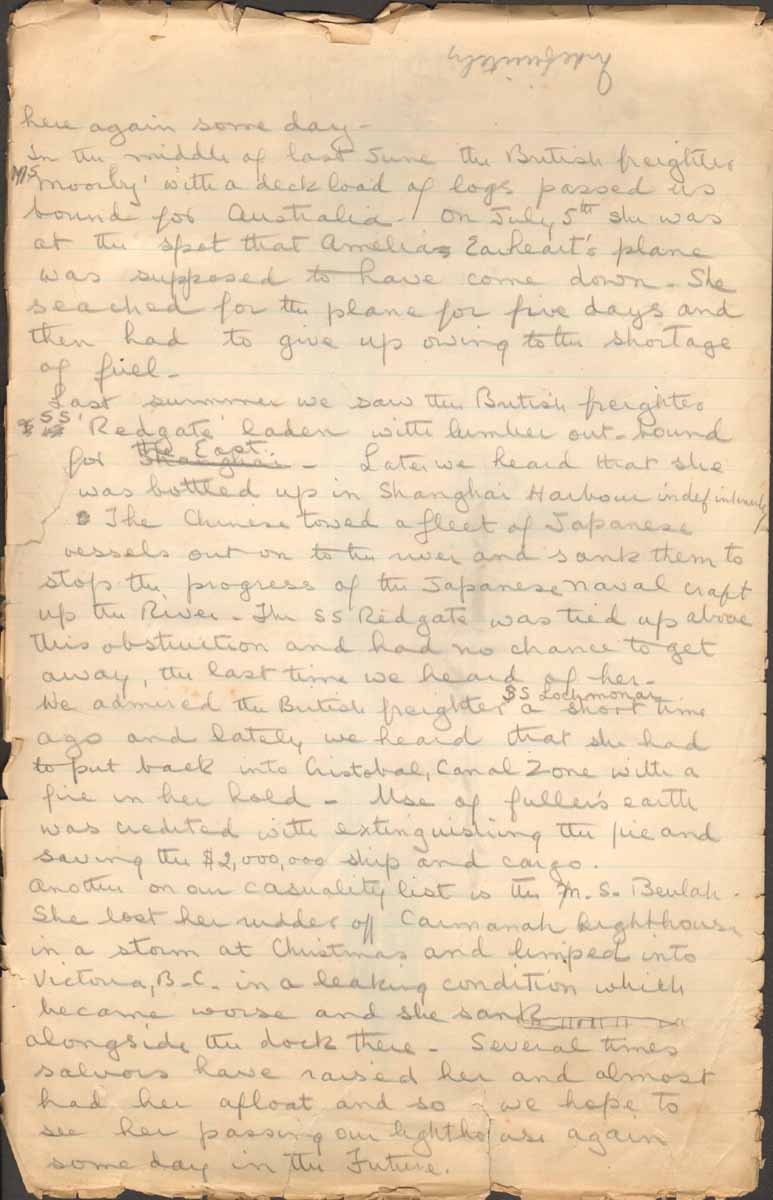 Indefinitely
here again some day -
In the middle of last June the British freighter
M/S 'Moorby' with a deck load of logs passed us
bound for Australia. On July 5th she was
at the spot that Amelias Earheart's plane
was supposed to have come down. She
seached for the plane for five days and
then had to give up owing to the shortage
of fuel -
Last summer we saw the British freighter
SS 'Redgate' laden with lumber out-bound
for Shanghai the East. - Later we heard that she
was bottled up in Shanghai Harbour indefinitely
The Chinese towed a fleet of Japanese
vessels out on to the river and sank them to
stop the progress of the Japanese naval craft
up the River - The SS Redgate was tied up above
this obstruction and had no chance to get
away, the last time we heard of her -
We admired the British freighter SS Lochmonar a short time
ago and lately we heard that she had
to put back into Cristobal, Canal Zone with a
fire in her hold - Use of fuller's earth
was credited with extinguishing the fire and
saving the $2,000,000 ship and cargo.
Another on our casuality list is the M.S. Beulah.
She lost her rudder off Carmanah Lighthouse
in a storm at Christmas and limped into
Victoria, B.C. in a leaking condition which
became worse and she sank
alongside the dock there - Several times
salvors have raised her and almost
had her afloat and so we hope to
see her passing our lighthouse again
some day in the Future.